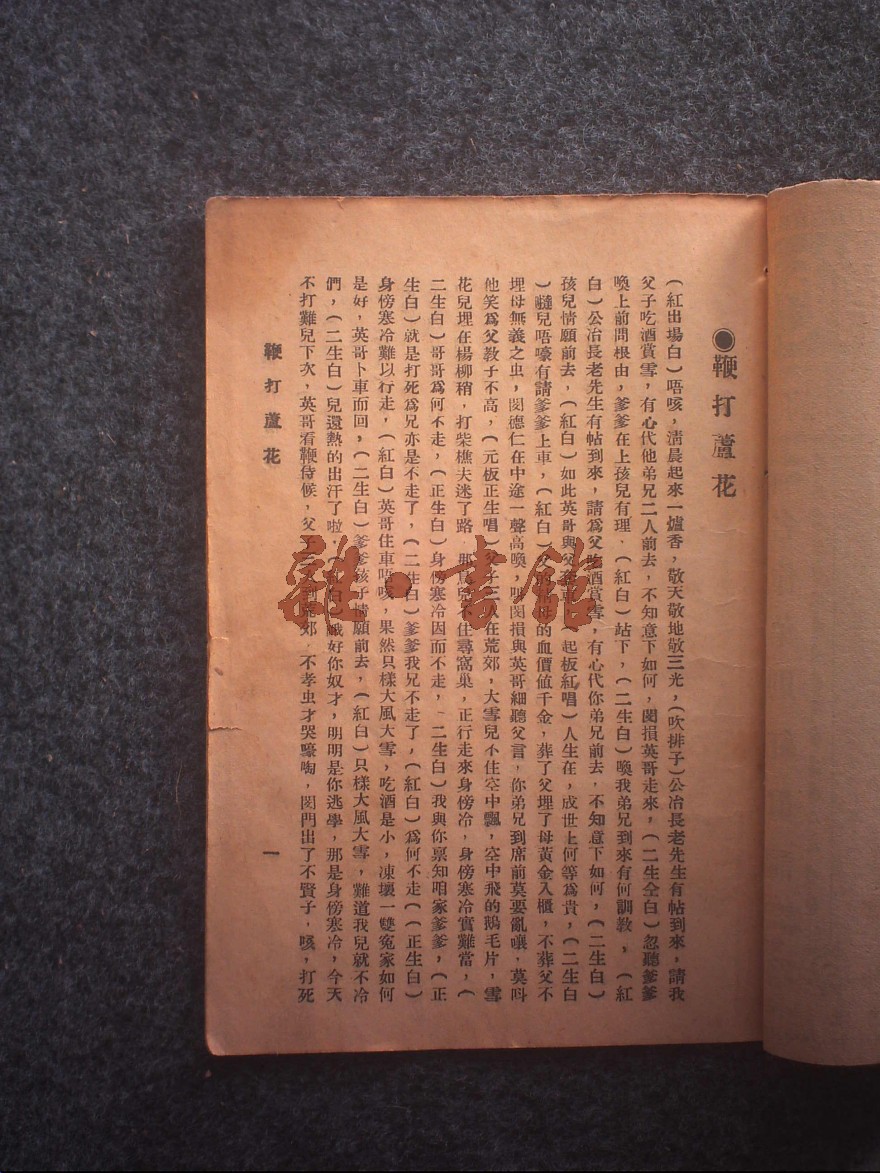 ●鞭打蘆花
(紅出場白)唔咳，清晨起來一爐香，敬天敬地敬三光，(吹排子)公冶長老先生有帖到來，請我
父子吃酒賞雪，有心代他弟兄二人前去，不知意下如何，閔損英哥走來，(二生仝白)忽聽爹爹
喚上前問根由，爹爹在上孩兒有理．(紅白)站下，(二生白)喚我弟兄到來有何訓教，(紅
白)公冶長老先生有帖到來，請爲父吃酒賞雪，有心代你弟兄前去，不知意下如何，(二生白)
孩兒情願前去，(紅白)如此英哥與父 起板紅唱)人生在，成世上何等爲貴，(二生白
)韃兒唔嚎有請爹爹上車，(紅白)父 母的血價値千金，葬了父埋了母黃金入櫃，不葬父不
埋母無義之虫，閔德仁在中途一聲高喚， 閔損與英哥細聽父言，你弟兄到席前莫要亂嚷，莫呌
他笑爲父敎子不高，(元板正生唱)父子三人在荒郊，大雪兒不住空中飄，空中飛的鵝毛片，雪
花兒埋在楊柳稍，打柴樵夫迷了路，那 兒 住尋窩巢，正行走來身傍冷，身傍寒冷實難當，(
二生白)哥哥爲何不走，(正生白)身傍寒冷因而不走，(二生白)我與你禀知咱家爹爹，(正
生白)就是打死爲兄亦是不走了，(二生白)爹爹我兄不走了，(紅白)爲何不走((正生白)
身傍寒冷難以行走，(紅白)英哥住車唔咳，果然只樣大風大雪，吃酒是小，凍壞一雙寃家如何
是好，英哥卜車而回，(二生白)爹爹孩子情願前去，(紅白)只樣大風大雪，難道我兒就不冷
們，(二生白)兒還熱的出汗了啦，(紅白) 好你奴才，明明是你逃學，那是身傍寒冷，今天
不打難兒下次，英哥看鞭侍候，父子 到荒郊．不孝虫才哭嚎啕，閔門出了不賢子．咳，打死
鞭打蘆花
一
雜·書館